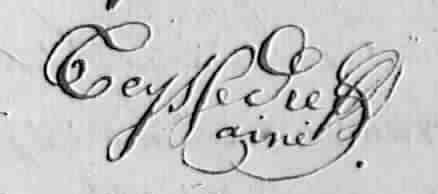 Teyssedre
ainé